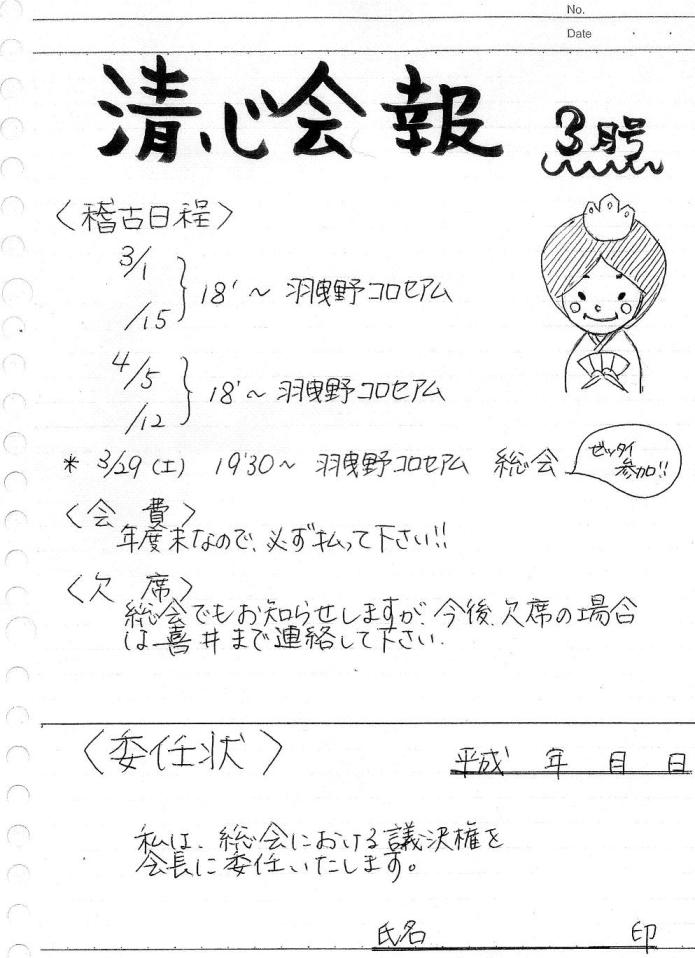 No.
Date ・ ・
清心会報 3月号
〈稽古日程〉
3/1
/15
18'〜 羽曳野コロセアム
4/5
/12
18'〜 羽曳野コロセアム
* 3/29(土) 19'30〜 羽曳野コロセアム 総会
ゼッタイ
参加!!
〈会 費〉
年度末なので、必ず払って下さい!!
〈欠 席〉
総会でもお知らせしますが、今後、欠席の場合
は喜井まで連絡して下さい.
〈委任状〉
平成 年 月 日
私は、総会における議決権を
会長に委任いたします。
氏名 印